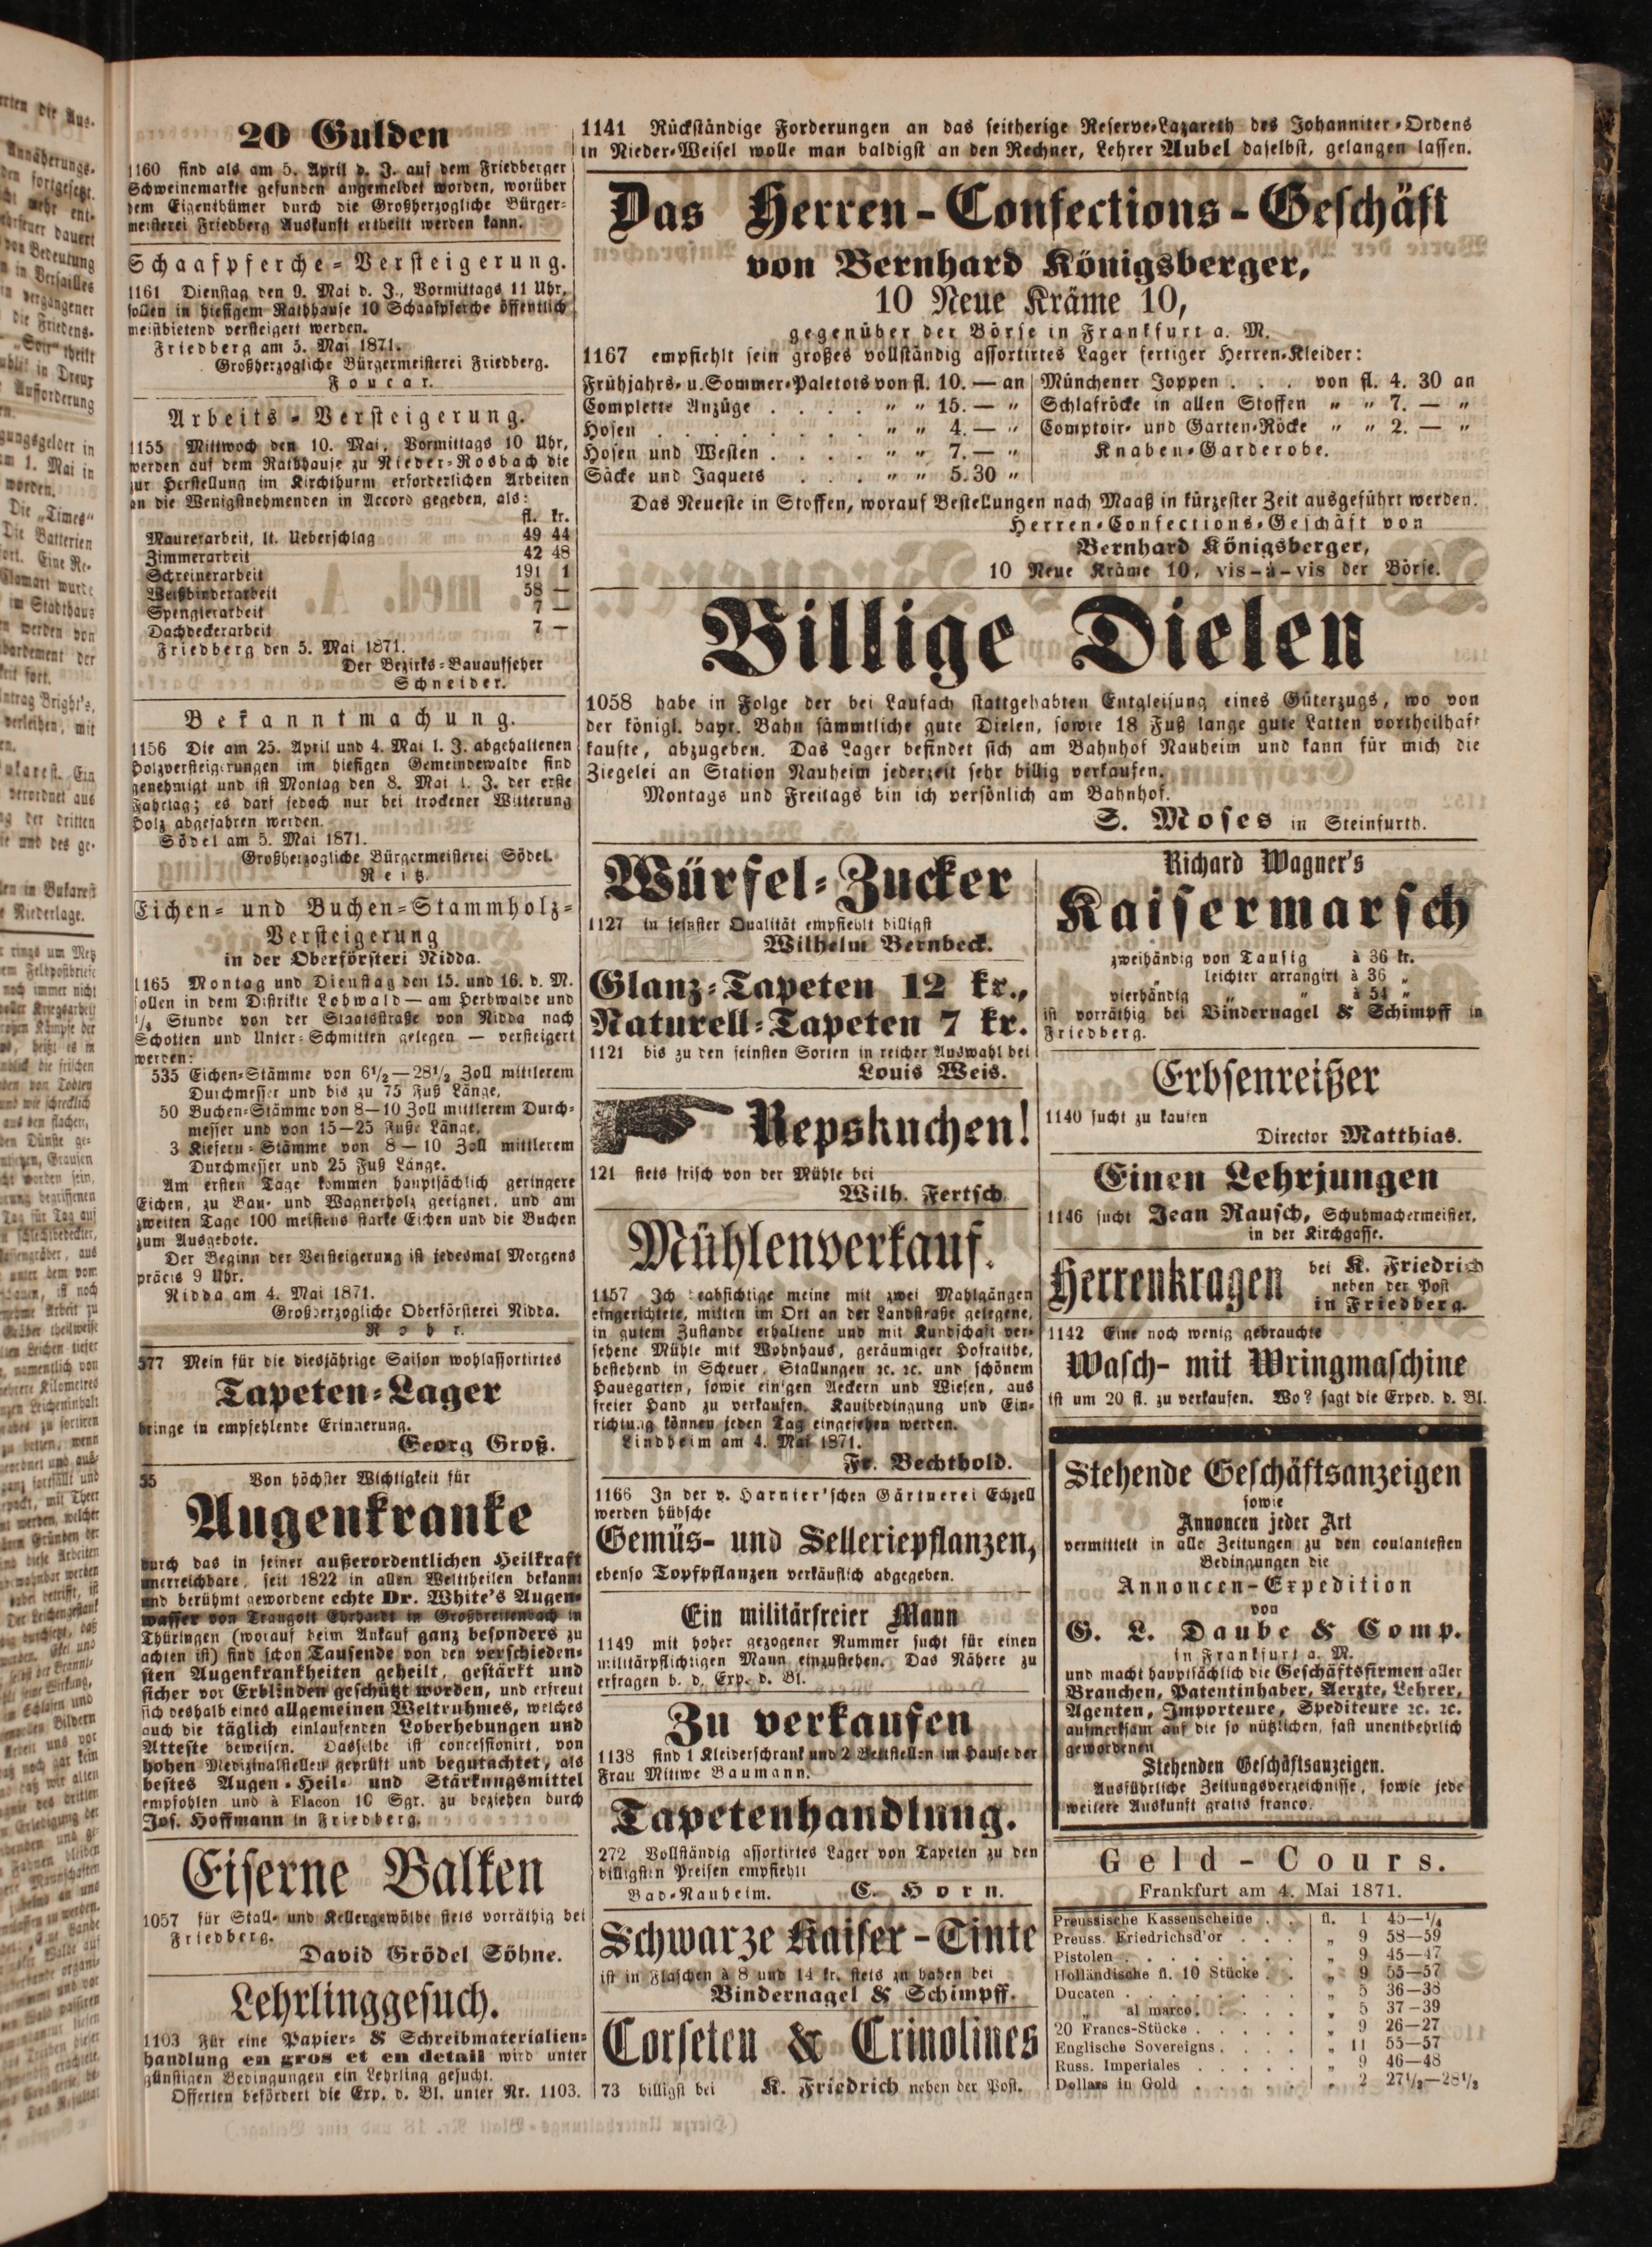 20 Gulden
1160 sind als am 5. April d. J. auf dem Friedberger
Schweinemarkte gefunden angemeldet worden, worüber
dem Eigenthümer durch die Großherzogliche Bürger-
meisterei Friedberg Auskunft ertheilt werden kann.
Schaafpferche-Versteigerung.
1161 Dienstag den 9. Mai d. J., Vormittags 11 Uhr,
sollen in hiesigem Rathhause 10 Schaafpferche öffentlich
meistbietend versteigert werden.
Friedberg am 5. Mai 1871.
Großherzogliche Bürgermeisterei Friedberg.
Foucar.
Arbeits-Versteigerung.
1155 Mittwoch den 10. Mai, Vormittags 10 Uhr,
werden auf dem Rathhause zu Nieder-Rosbach die
zur Herstellung im Kirchthurm erforderlichen Arbeiten
an die Wenigstnehmenden in Accord gegeben, als:
fl. kr.
Maurerarbeit, lt. Ueberschlag 49 44
Zimmerarbeit 42 48
Schreinerarbeit 191 1
Weißbinderarbeit 58 —
Spenglerarbeit 7 —
Dachdeckerarbeit 7 —
Friedberg den 5. Mai 1871.
Der Bezirks-Bauaufseher
Schneider.
Bekanntmachung.
1156 Die am 25. April und 4. Mai l. J. abgehaltenen
Holzversteigerungen im hiesigen Gemeindewalde sind
genehmigt und ist Montag den 8. Mai l. J. der erste
Fahrtag; es darf jedoch nur bei trockener Witterung
Holz abgefahren werden.
Södel am 5. Mai 1871.
Großherzogliche Bürgermeisterei Södel.
Reitz.
Eichen- und Buchen-Stammholz-
Versteigerung
in der Oberförsteri Nidda.
1165 Montag und Dienstag den 15. und 16. d. M.
sollen in dem Distrikte Lohwald — am Herbwalde und
1/4 Stunde von der Staatsstraße von Nidda nach
Schotten und Unter-Schmitten gelegen — versteigert
werden:
535 Eichen-Stämme von 6 1/2—28 1/2 Zoll mittlerem
Durchmesser und bis zu 75 Fuß Länge,
50 Buchen-Stämme von 8—10 Zoll mittlerem Durch-
messer und von 15—25 Fuße Länge,
3 Kiefern-Stämme von 8—10 Zoll mittlerem
Durchmesser und 25 Fuß Länge.
Am ersten Tage kommen hauptsächlich geringere
Eichen, zu Bau- und Wagnerholz geeignet, und am
zweiten Tage 100 meistens starke Eichen und die Buchen
zum Ausgebote.
Der Beginn der Versteigerung ist jedesmal Morgens
präcis 9 Uhr.
Nidda am 4. Mai 1871.
Großherzogliche Oberförsterei Nidda.
Rohr.
577 Mein für die diesjährige Saison wohlassortirtes
Tapeten-Lager
bringe in empfehlende Erinnerung.
Georg Groß.
55 Von höchster Wichtigkeit für
Augenkranke
durch das in seiner außerordentlichen Heilkraft
unerreichbare, seit 1822 in allen Welttheilen bekannt
und berühmt gewordene echte Dr. White's Augen-
wasser von Traugott Ehrhardt in Großbreitenbach in
Thüringen (worauf beim Ankauf ganz besonders zu
achten ist) sind schon Tausende von den verschieden-
sten Augenkrankheiten geheilt, gestärkt und
sicher vor Erblinden geschützt worden, und erfreut
sich deshalb eines allgemeinen Weltruhmes, welches
auch die täglich einlaufenden Loberhebungen und
Atteste beweisen. Dasselbe ist concessionirt, von
hohen Medizinalstellen geprüft und begutachtet, als
bestes Augen-Heil- und Stärkungsmittel
empfohlen und à Flacon 10 Sgr. zu beziehen durch
Jos. Hoffmann in Friedberg.
Eiserne Balken
1057 für Stall- und Kellergewölbe stets vorräthig bei
Friedberg.
David Grödel Söhne.
Lehrlinggesuch.
1103 Für eine Papier- & Schreibmaterialien-
handlung en gros et en detail wird unter
günstigen Bedingungen ein Lehrling gesucht.
Offerten befördert die Exp. d. Bl. unter Nr. 1103.
1141 Rückständige Forderungen an das seitherige Reserve-Lazareth des Johanniter-Ordens
in Nieder-Weisel wolle man baldigst an den Rechner, Lehrer Aubel daselbst, gelangen lassen.
Das Herren-Confections-Geschäft
von Bernhard Königsberger,
10 Neue Kräme 10,
gegenüber der Börse in Frankfurt a. M.
1167 empfiehlt sein großes vollständig assortirtes Lager fertiger Herren-Kleider:
Frühjahrs- u. Sommer-Paletots von fl. 10. — an
Complette Anzüge . . . . " " 15. — "
Hosen . . . . . . . . " " 4. — "
Hosen und Westen . . . . " " 7. — "
Säcke und Jaquets . . . " " 5.30 "
Münchener Joppen . . . von fl. 4. 30 an
Schlafröcke in allen Stoffen " " 7. — "
Comptoir- und Garten-Röcke " " 2. — "
Knaben-Garderobe.
Das Neueste in Stoffen, worauf Bestellungen nach Maaß in kürzester Zeit ausgeführt werden.
Herren-Confections-Geschäft von
Bernhard Königsberger,
10 Neue Kräme 10, vis-à-vis der Börse.
Billige Dielen
1058 habe in Folge der bei Laufach stattgehabten Entgleisung eines Güterzugs, wo von
der königl. bayr. Bahn sämmtliche gute Dielen, sowie 18 Fuß lange gute Latten vortheilhaft
kaufte, abzugeben. Das Lager befindet sich am Bahnhof Nauheim und kann für mich die
Ziegelei an Station Nauheim jederzeit sehr billig verkaufen.
Montags und Freitags bin ich persönlich am Bahnhof.
S. Moses in Steinfurth.
Würfel-Zucker
1127 in feinster Qualität empfiehlt billigst
Wilhelm Bernbeck.
Glanz-Tapeten 12 kr.,
Naturell-Tapeten 7 kr.
1121 bis zu den feinsten Sorten in reicher Auswahl bei
Louis Weis.
Repskuchen!
121 stets frisch von der Mühle bei
Wilh. Fertsch.
Mühlenverkauf.
1157 Ich beabsichtige meine mit zwei Mahlgängen
eingerichtete, mitten im Ort an der Landstraße gelegene,
in gutem Zustande erhaltene und mit Kundschaft ver-
sehene Mühle mit Wohnhaus, geräumiger Hofraithe,
bestehend in Scheuer, Stallungen ꝛc. ꝛc. und schönem
Hausgarten, sowie einigen Aeckern und Wiesen, aus
freier Hand zu verkaufen. Kaufbedingung und Ein-
richtung können jeden Tag eingesehen werden.
Lindheim am 4. Mai 1871.
Fr. Bechthold.
1166 In der v. Harnier'schen Gärtnerei Echzell
werden hübsche
Gemüs- und Selleriepflanzen,
ebenso Topfpflanzen verkäuflich abgegeben.
Ein militärfreier Mann
1149 mit hoher gezogener Nummer sucht für einen
militärpflichtigen Mann einzustehen. Das Nähere zu
erfragen b. d. Exp. d. Bl.
Zu verkaufen
1138 sind 1 Kleiderschrank und 2 Bettstellen im Hause der
Frau Mittwe Baumann.
Tapetenhandlung.
272 Vollständig assortirtes Lager von Tapeten zu den
billigsten Preisen empfiehlt
Bad-Nauheim. C. Horn.
Schwarze Kaiser-Tinte
ist in Flaschen à 8 und 14 kr. stets zu haben bei
Bindernagel & Schimpff.
Corseten & Crinolines
73 billigst bei K. Friedrich neben der Post.
Richard Wagner's
Kaisermarsch
zweihändig von Tausig à 36 kr.
" leichter arrangirt à 36 "
vierhändig " " à 54 "
ist vorräthig bei Bindernagel & Schimpff in
Friedberg.
Erbsenreißer
1140 sucht zu kaufen
Director Matthias.
Einen Lehrjungen
1146 sucht Jean Rausch, Schuhmachermeister,
in der Kirchgasse.
Herrenkragen bei K. Friedrich
neben der Post
in Friedberg.
1142 Eine noch wenig gebrauchte
Wasch- mit Wringmaschine
ist um 20 fl. zu verkaufen. Wo? sagt die Exped. d. Bl.
Stehende Geschäftsanzeigen
sowie
Annoncen jeder Art
vermittelt in alle Zeitungen zu den coulantesten
Bedingungen die
Annoncen-Expedition
von
G. L. Daube & Comp.
in Frankfurt a. M.
und macht hauptsächlich die Geschäftsfirmen aller
Branchen, Patentinhaber, Aerzte, Lehrer,
Agenten, Importeure, Spediteure ꝛc. ꝛc.
aufmerksam auf die so nützlichen, fast unentbehrlich
gewordenen
Stehenden Geschäftsanzeigen.
Ausführliche Zeitungsverzeichnisse, sowie jede
weitere Auskunft gratis franco.
Geld-Cours.
Frankfurt am 4. Mai 1871.
Preussische Kassenscheine . . fl. 1 45—1/4
Preuss. Friedrichsd'or . . . " 9 58—59
Pistolen . . . . . . . " 9 45—47
Holländische fl. 10 Stücke . . " 9 55—57
Ducaten . . . . . . . " 5 36—38
" al marco . . . . . " 5 37—39
20 Francs-Stücke . . . . . " 9 26—27
Englische Sovereigns . . . . " 11 55—57
Russ. Imperiales . . . . . " 9 46—48
Dollars in Gold . . . . . " 2 27 1/2—28 1/2